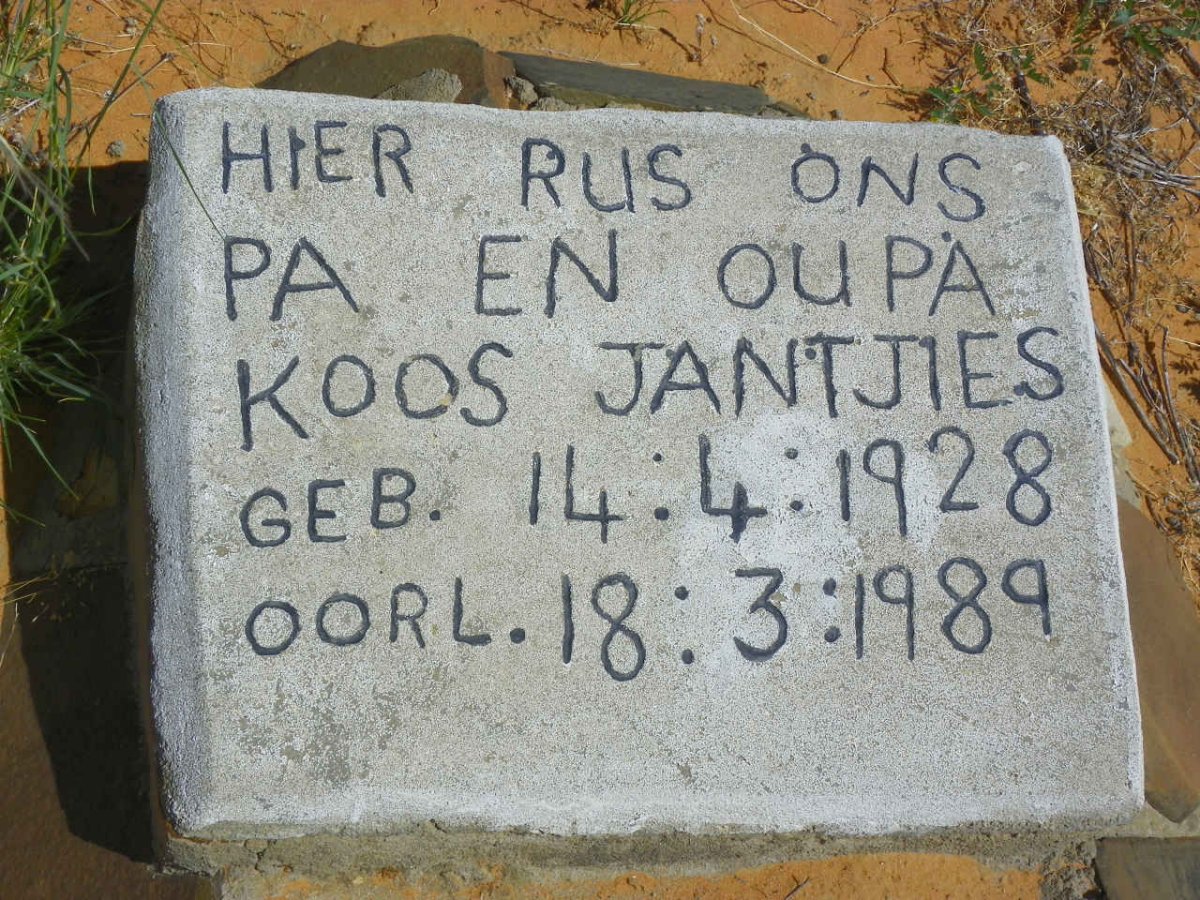 HIER RUS ONS
PA EN OUPA
KOOS JANTJIES
GEB. 14:4:1928
OORL. 18:3:1989